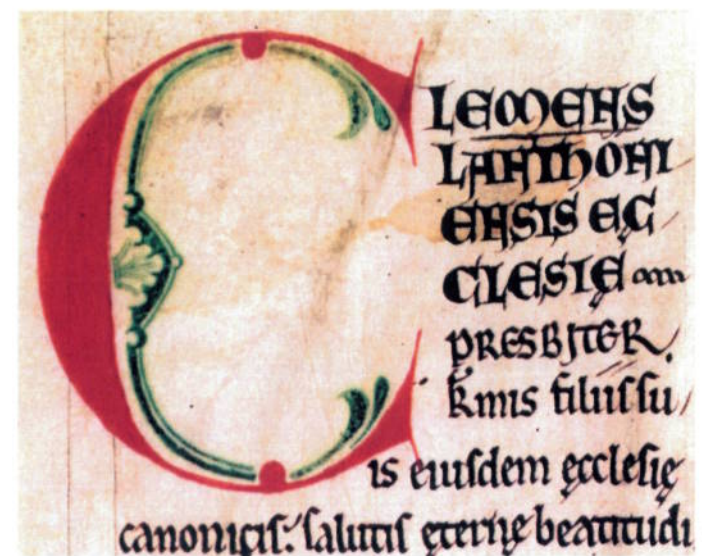 CLEMENS
LANTHONI
ENSIS EC
CLESIĘ
PRESBITER.
k̅mis filiis su/
is eiusdem ęcclesię
canonicis: salutis ęternę beatitudi